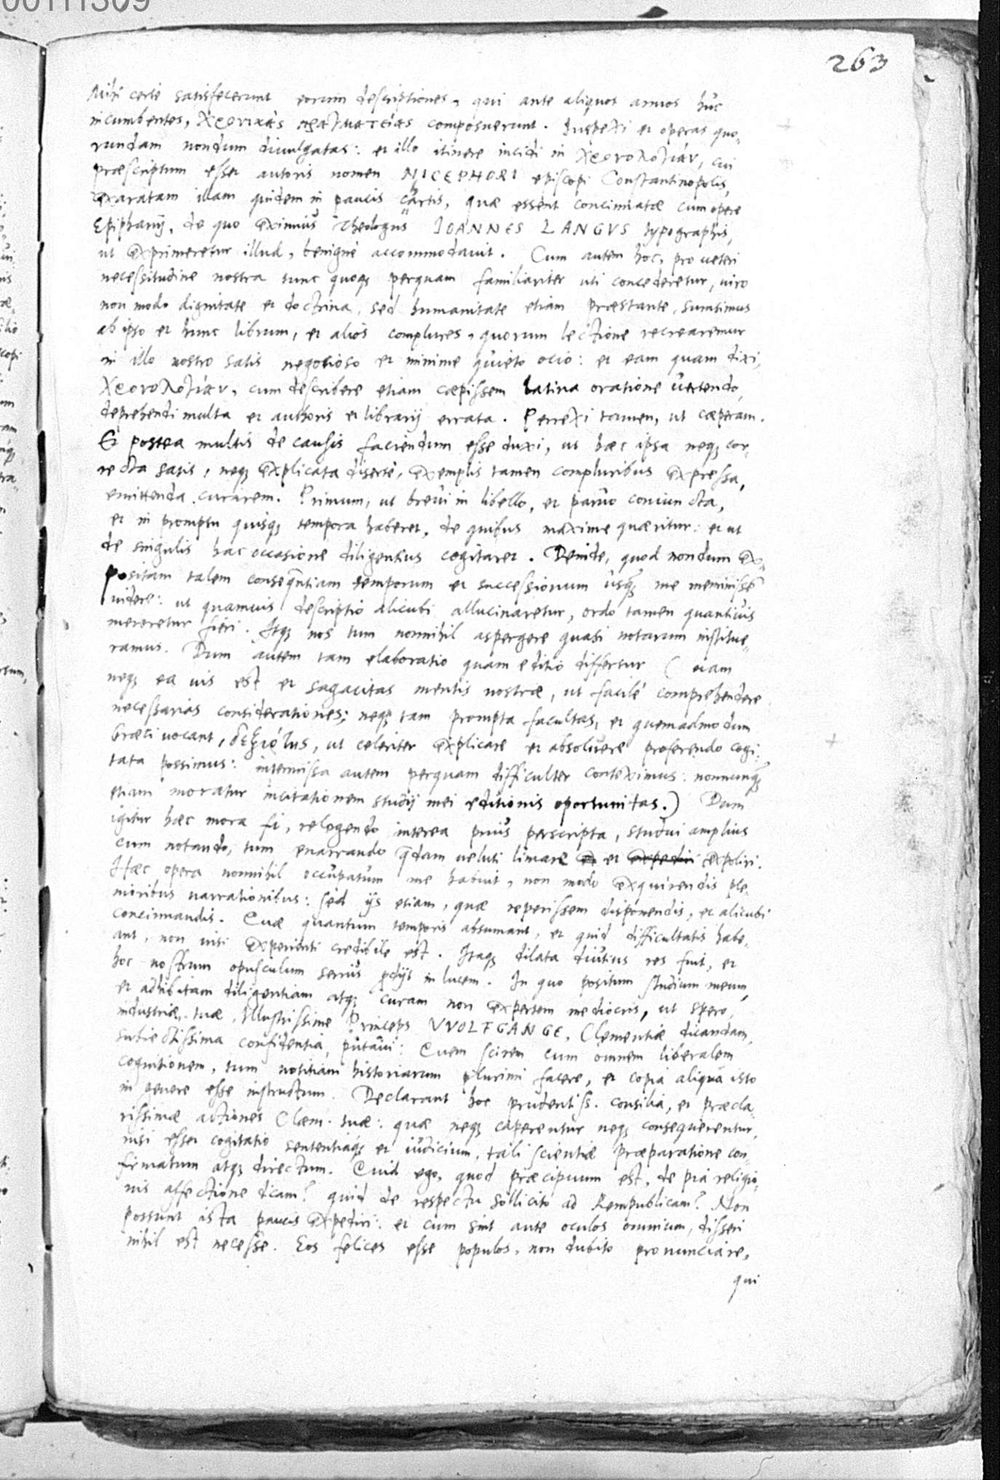 00111309
263
Mihi certe satisfecerunt eorum descriptiones, qui ante aliquot annos huc
incumbentes, χρονικὰς πραγματείας composuerunt. Inspexi et operas quo-
rundam nondum divulgatas: et illo itinere incidi in χρονολογίαν, cui
præscriptum esset autoris nomen NICEPHORI episcopi Constantinopolis,
exaratam illam quidem in paucis cartis, quæ essent concinnatæ cum opere
Epiphanij, de quo eximius Theologus IOANNES LANGVS typographis,
ut exprimeretur illud, benignè accommodavit. Cum autem hoc, pro veteri
necessitudine nostra tunc quoqꝫ perquam familiariter uti concederetur, viro
non modo dignitate et doctrina, sed humanitate etiam præstante, sumsimus
ab ipso et hunc librum, et alios complures, quorum lectione recrearemur
in illo nostro satis negotioso et minime quieto ocio: et eam quam dixi,
χρονολογίαν, cum describere etiam cœpissem latina oratione vertendo,
deprehendi multa et authoris et librarij errata. Perrexi tamen, ut cœperam.
Et postea multis de causis faciendum esse duxi, ut hæc ipsa neqꝫ cor-
recta satis, neqꝫ explicata disertè, exemplis tamen compluribus expressa,
emittenda curarem. Primum, ut brevi in libello, et parvo coniuncta,
et in promptu quisqꝫ tempora haberet, de quibus maxime quæritur: et ut
de singulis hac occasione diligentius cogitaret. Deinde, quod nondum ex-
positam talem consequentiam temporum et successionum usqꝫ me meminissem
videre: ut quamuis descriptio alicubi allucinaretur, ordo tamen quantivis
mereretur fieri. Atqꝫ nos tum nonnihil aspergere quasi notarum institue-
ramus. Dum autem tam elaboratio quam editio differtur (etiam
neqꝫ ea vis est et sagacitas mentis nostræ, ut facilè comprehendere
necessarias considerationes; neqꝫ tam prompta facultas, et quemadmodum
Græci vocant, δεξιότης, ut celeriter explicare et absolvere proferendo cogi-
tata possimus: intermissa autem perquam difficulter conteximus: nonnunqꝫ
etiam moratur incitationem studij mei editionis oportunitas.) Dum
igitur hæc mora fit, relegendo interea prius perscripta, studui amplius
cum notando, tum enarrando quædam veluti limare et expoliri.
Hæc opera nonnihil occupatum me habuit, non modo exquirendis ple-
nioribus narrationibus: sed ijs etiam, quæ reperissem disponendis, et alicubi
concinnandis. Quæ quantum temporis absumant, et quid difficultatis habe-
ant, non nisi experienti credibile est. Itaqꝫ dilata diutius res fuit, et
hoc nostrum opusculum serius prodijt in lucem. In quo positum studium meum,
et adhibitam diligentiam atqꝫ curam non expertem mediocris, ut spero,
industriæ, tuæ, Illustrissime Princeps VVOLFGANGE, Clementiæ dicandam,
subiectissima confidentia, putavi: Quem scirem cum omnem liberalem
cognitionem, tum notitiam historiarum plurimi facere, et copia aliqua isto
in genere esse instructum. Declarant hoc prudentiss. consilia, et præcla-
rissimæ actiones Clem. tuæ: quæ neqꝫ caperentur neqꝫ consequerentur,
nisi esset cogitatio sententiaqꝫ et iudicium, tali scientiæ præparatione con-
firmatum atqꝫ directum. Quid ego, quod præcipuum est, de pia religio-
nis affectione dicam? quid de respectu sollicito ad Rempublicam? Non
possunt ista paucis expediri: et cum sint ante oculos omnium, disseri
nihil est necesse. Eos felices esse populos, non dubito pronunciare,
qui